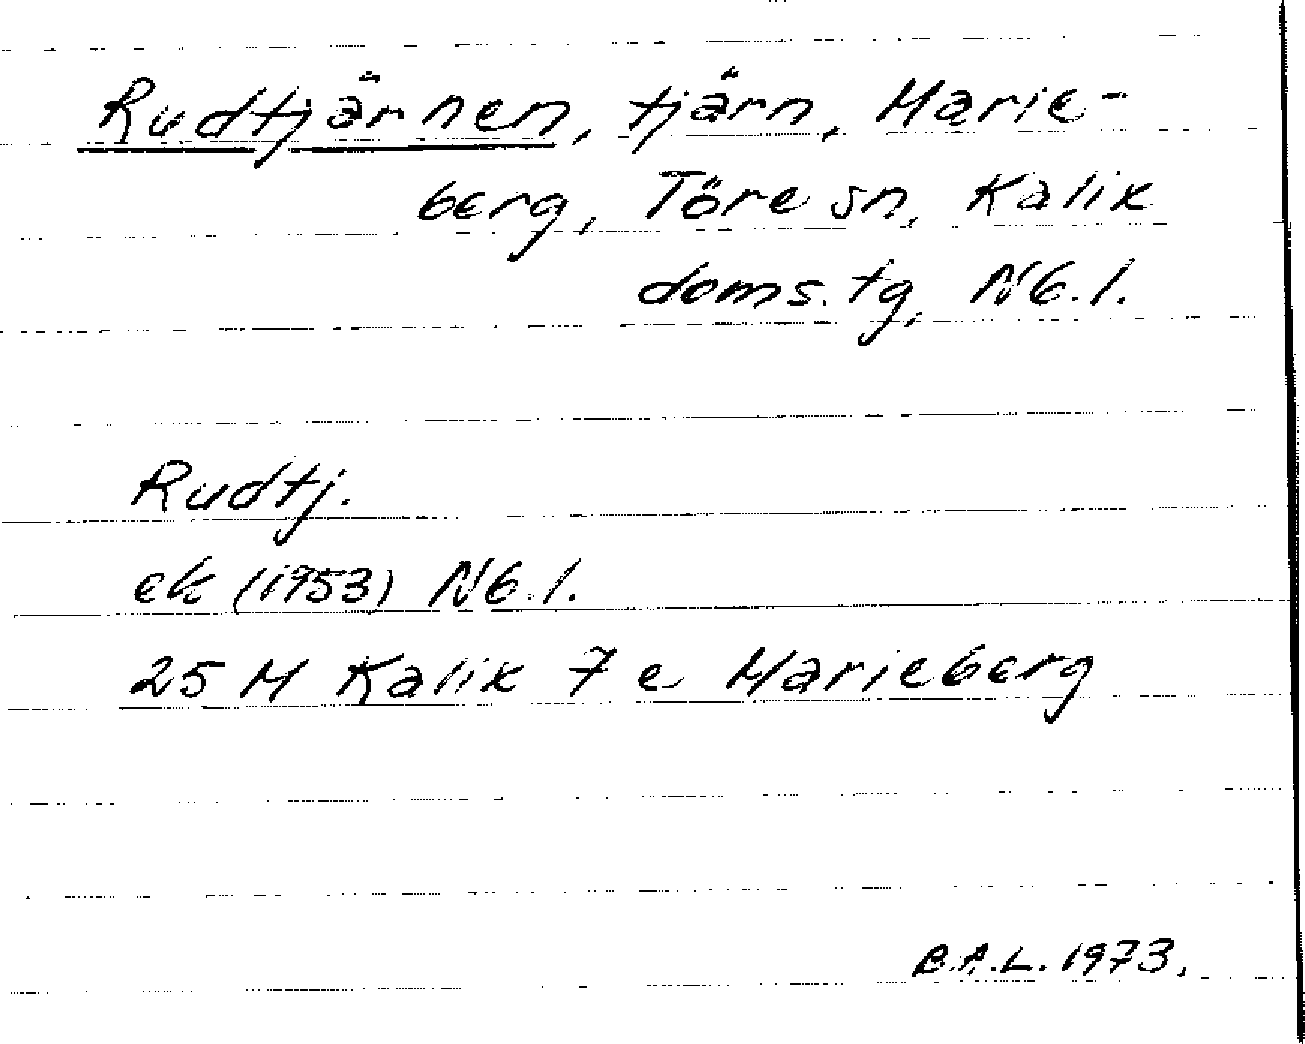 Rudtjärnen, tjärn, Marie-
berg, Töre sn, Kalix
doms. tg, Nb. l.
Rudtj.
ek (1953) Nb. l.
25 M Kalix 7 e Marieberg
B.A.L. 1973.